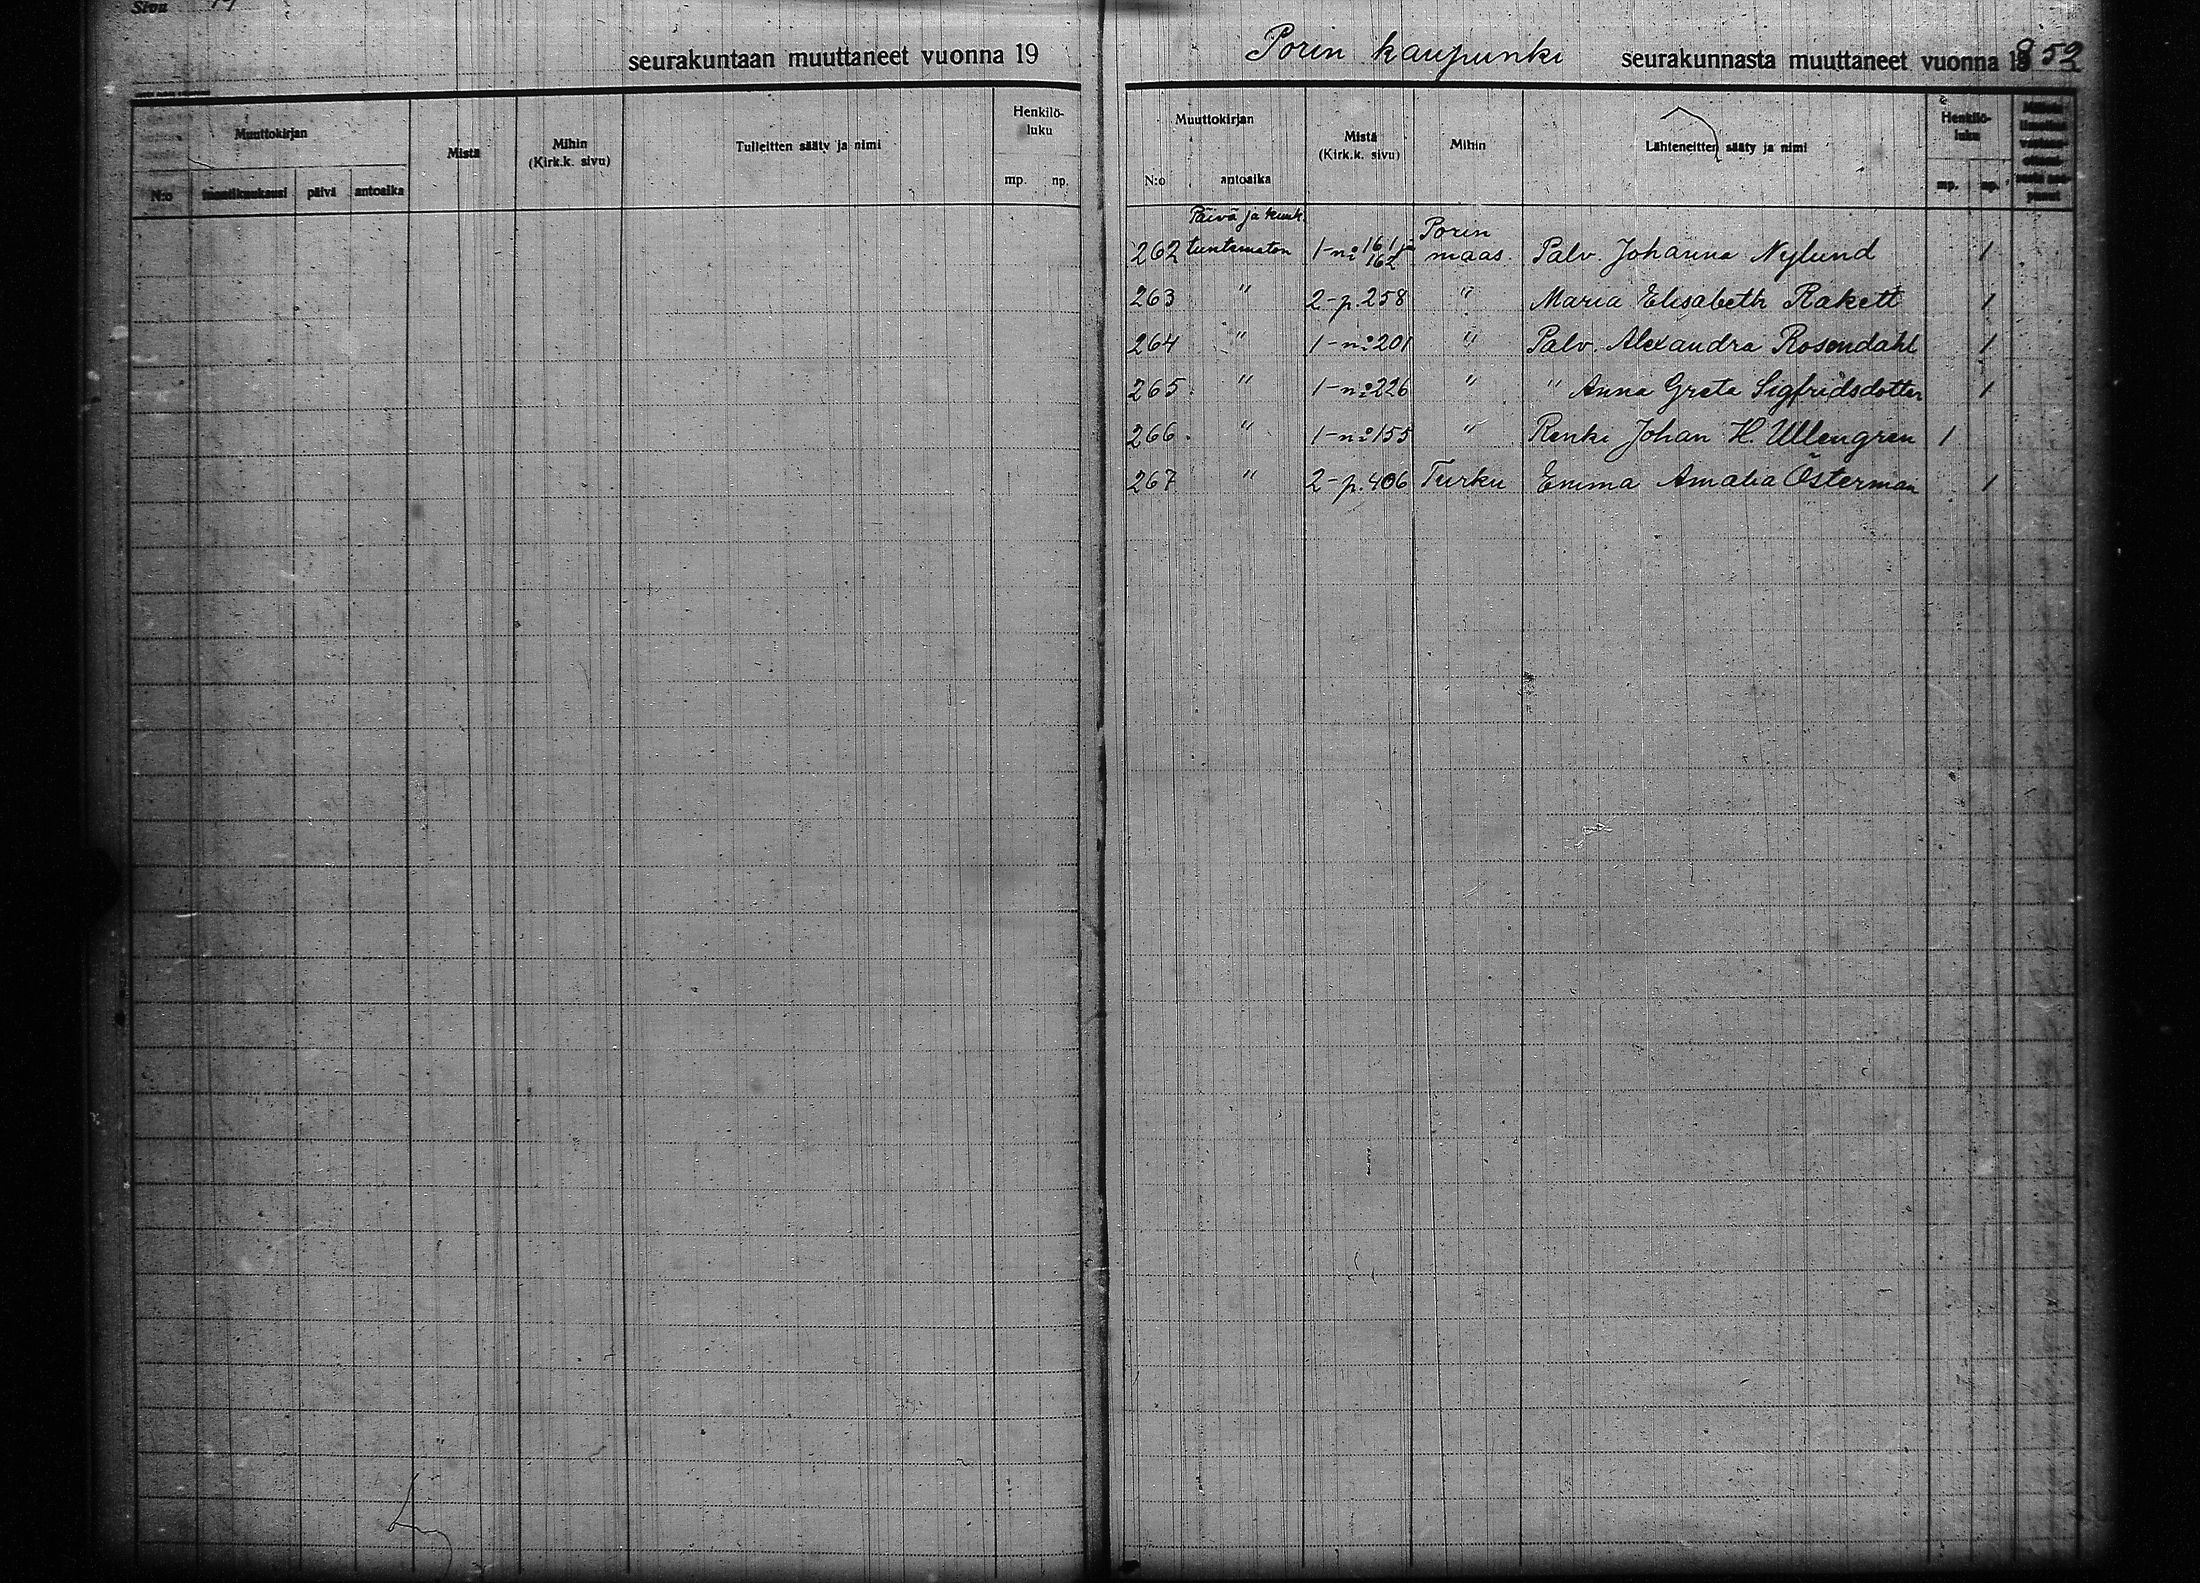 Sivu
seurakuntaan muuttaneet vuonna 19
Muuttokirjan
Mistä
Mihin
(Kirk.k. sivu)
Tulleitten sääty ja nimi
Henkilö-
luku
N:o
päivä
antoaika
mp.
np.
Porin kaupunki seurakunnasta muuttaneet vuonna 1852
Muuttokirjan
Mistä
(Kirk.k. sivu)
Mihin
Lähteneitten sääty ja nimi
Henkilö-
luku
N:o
antoaika
mp.
np.
Päivä ja kuuk. Porin
262 tuntematon 1-n:o 161 ja 162 maas. Palv. Johanna Nylund 1
263 " 2-p.258 " Maria Elisabeth Rakett 1
264 " 1-n:o201 " Palv. Alexandra Rosendahl 1
265. " 1-n:o226 " " Anna Greta Sigfridsdotter 1
266. " 1-n:o155 " Renki Johan H. Ullengren 1
267 " 2-p.406 Turku Emma Amalia Österman 1